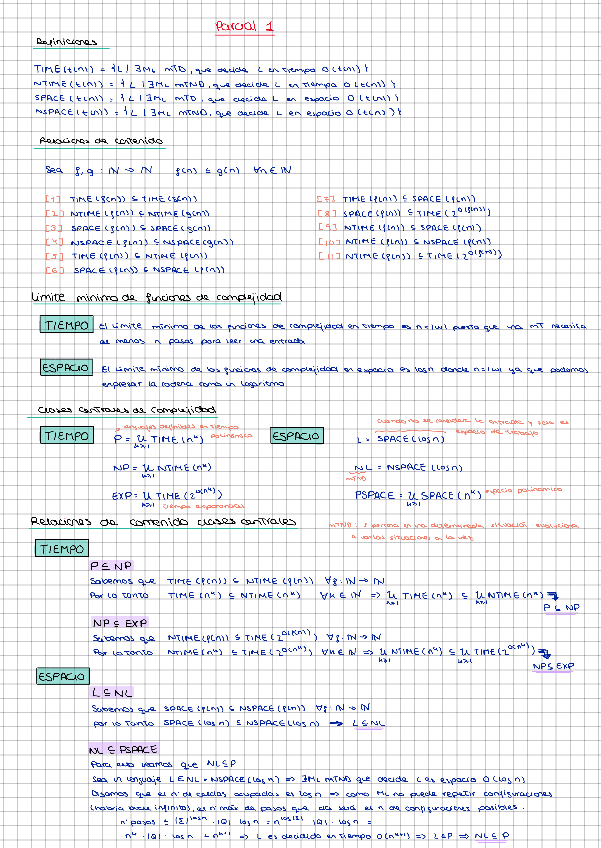 Parcial 1
Definiciones
TIME(t(n)) = {L | ∃M_L MTD, que decide L en tiempo O(t(n))}
NTIME(t(n)) = {L | ∃M_L MTND, que decide L en tiempo O(t(n))}
SPACE(t(n)) = {L | ∃M_L MTD, que decide L en espacio O(t(n))}
NSPACE(t(n)) = {L | ∃M_L MTND, que decide L en espacio O(t(n))}
Relaciones de contenido
Sea f, g : ℕ → ℕ f(n) ≤ g(n) ∀n ∈ ℕ
[1] TIME(f(n)) ⊆ TIME(g(n))
[2] NTIME(f(n)) ⊆ NTIME(g(n))
[3] SPACE(f(n)) ⊆ SPACE(g(n))
[4] NSPACE(f(n)) ⊆ NSPACE(g(n))
[5] TIME(f(n)) ⊆ NTIME(f(n))
[6] SPACE(f(n)) ⊆ NSPACE(f(n))
[7] TIME(f(n)) ⊆ SPACE(f(n))
[8] SPACE(f(n)) ⊆ TIME(2^O(f(n)))
[9] NTIME(f(n)) ⊆ SPACE(f(n))
[10] NTIME(f(n)) ⊆ NSPACE(f(n))
[11] NTIME(f(n)) ⊆ TIME(2^O(f(n)))
Límite mínimo de funciones de complejidad
TIEMPO El límite mínimo de las funciones de complejidad en tiempo es n=|w| puesto que una MT necesita
al menos n pasos para leer una entrada
ESPACIO El límite mínimo de las funciones de complejidad en espacio es log n donde n=|w| ya que podemos
expresar la cadena como un logaritmo
Clases centrales de complejidad
TIEMPO
lenguajes definibles en tiempo polinómico
P = ∪ TIME(n^k) k≥1
NP = ∪ NTIME(n^k) k≥1
EXP = ∪ TIME(2^O(n^k)) k≥1 tiempo exponencial
ESPACIO
cuando no se considera la entrada y solo es
espacio de trabajo
L = SPACE(log n)
NL = NSPACE(log n)
MTND
PSPACE = ∪ SPACE(n^k) k≥1 espacio polinómico
MTND: a partir en una determinada situación evoluciona
a varias situaciones a la vez
Relaciones de contenido clases centrales
TIEMPO
P ⊆ NP
Sabemos que TIME(f(n)) ⊆ NTIME(f(n)) ∀f: ℕ → ℕ
Por lo tanto TIME(n^k) ⊆ NTIME(n^k) ∀k ∈ ℕ => ∪ TIME(n^k) ⊆ ∪ NTIME(n^k) =>
P ⊆ NP
NP ⊆ EXP
Sabemos que NTIME(f(n)) ⊆ TIME(2^O(f(n))) ∀f: ℕ → ℕ
Por lo tanto NTIME(n^k) ⊆ TIME(2^O(n^k)) ∀k ∈ ℕ => ∪ NTIME(n^k) ⊆ ∪ TIME(2^O(n^k)) =>
NP ⊆ EXP
ESPACIO
L ⊆ NL
Sabemos que SPACE(f(n)) ⊆ NSPACE(f(n)) ∀f: ℕ → ℕ
por lo tanto SPACE(log n) ⊆ NSPACE(log n) => L ⊆ NL
NL ⊆ PSPACE
Para eso veamos que NL ⊆ P
Sea un lenguaje L ∈ NL = NSPACE(log n) => ∃M_L MTND que decide L en espacio O(log n)
Digamos que el nº de celdas ocupadas es log n => como M_L no puede repetir configuraciones
(habría bucle infinito), el nº máx de pasos que da será el nº de configuraciones posibles.
nº pasos ≤ |Σ|^log n · |Q| · log n = n^log|Σ| · |Q| · log n =
n^k · |Q| · log n ≤ n^k+1 => L es decidido en tiempo O(n^k+1) => L ∈ P => NL ⊆ P